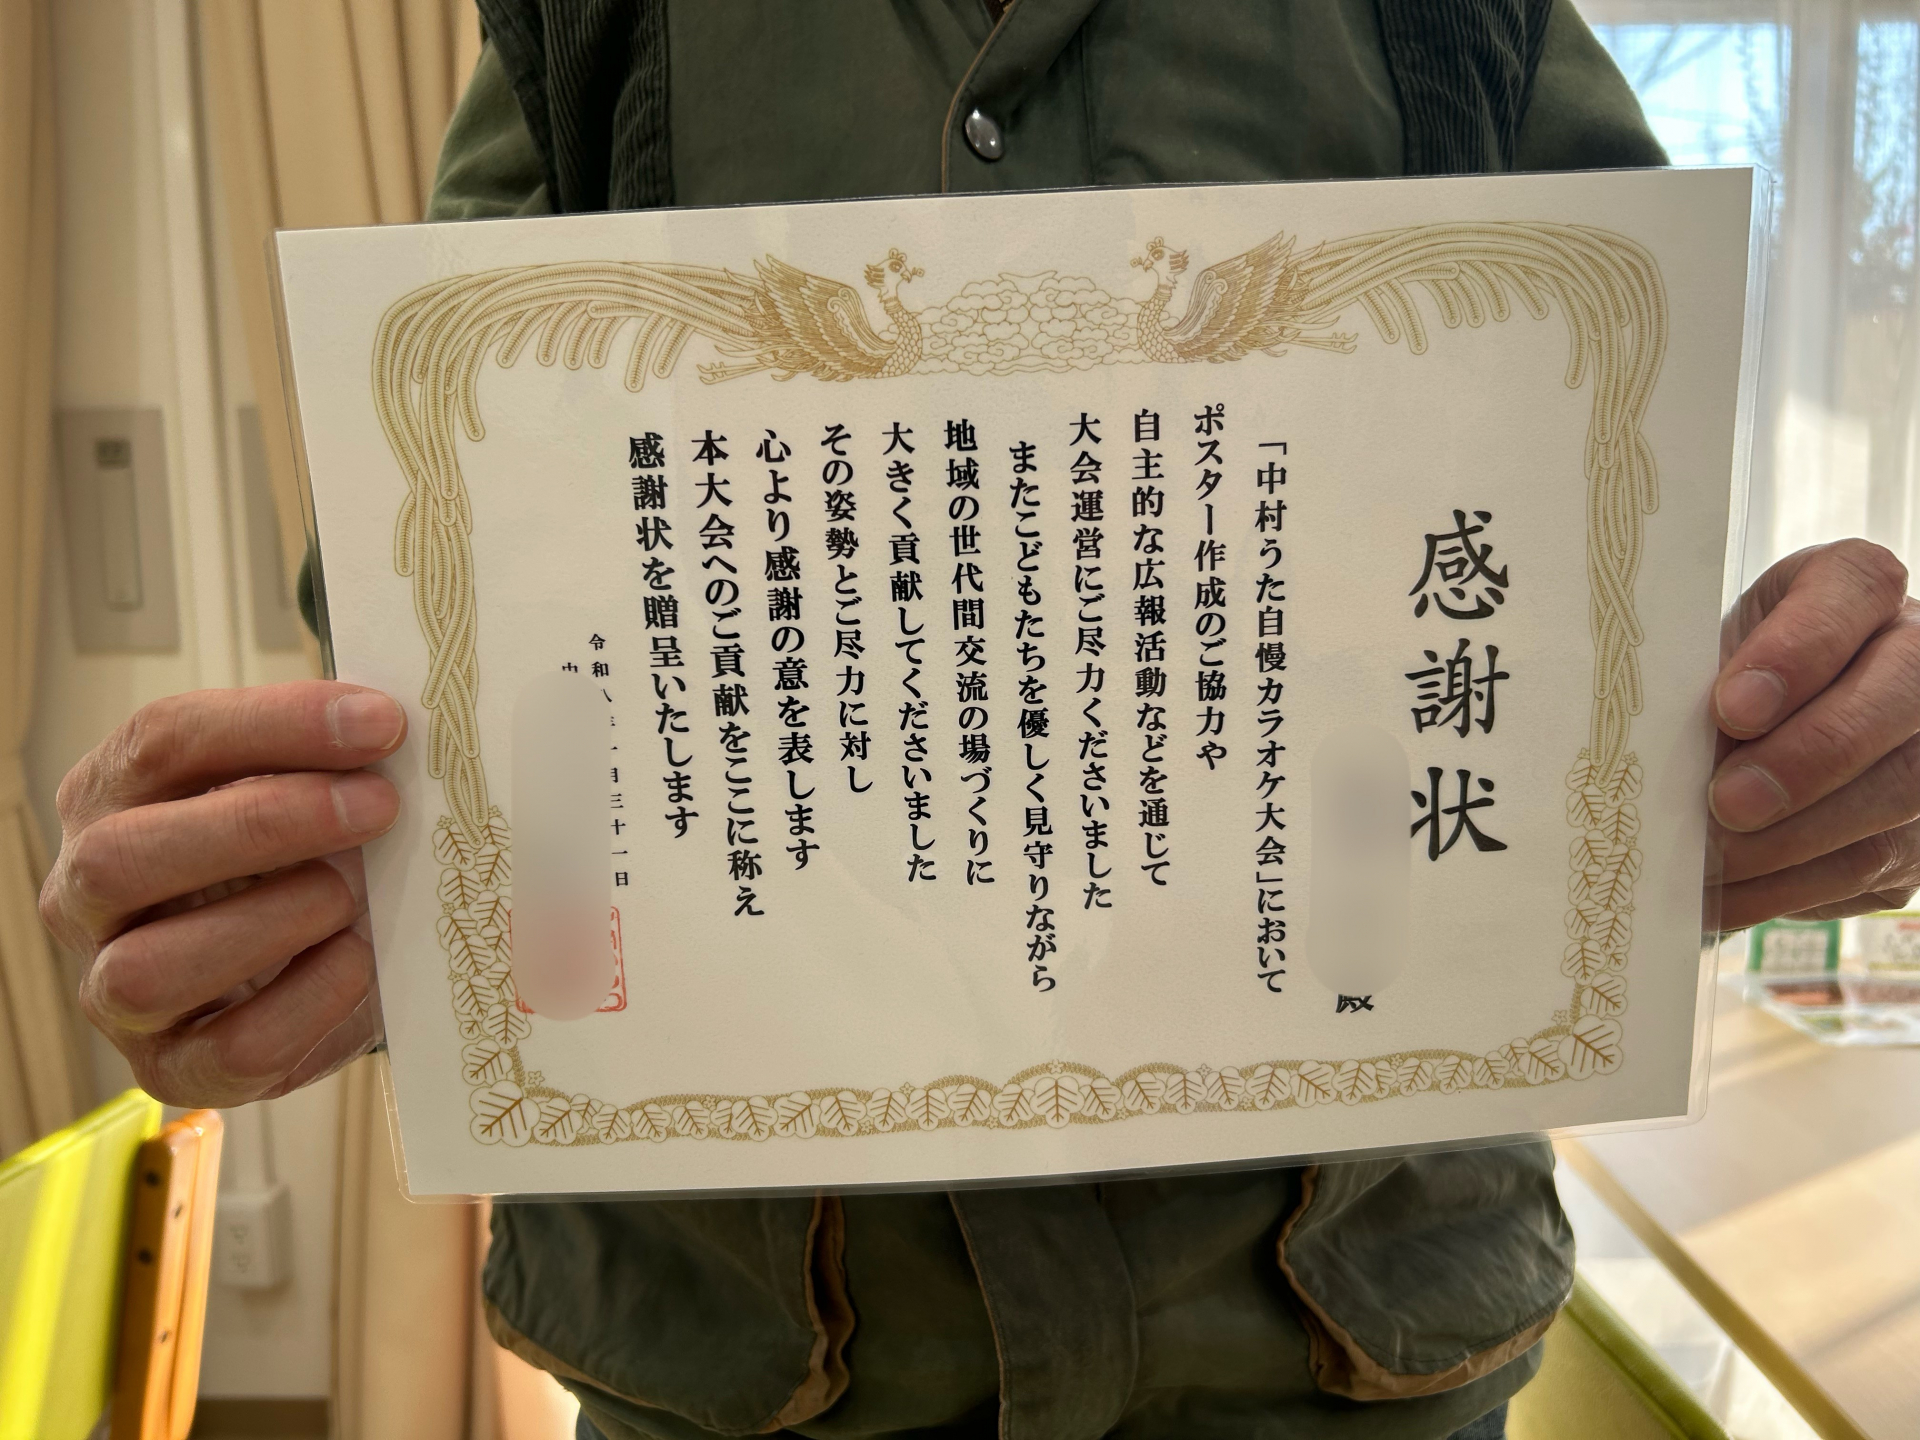 感謝状
殿
「中村うた自慢カラオケ大会」において
ポスター作成のご協力や
自主的な広報活動などを通じて
大会運営にご尽力くださいました
またこどもたちを優しく見守りながら
地域の世代間交流の場づくりに
大きく貢献してくださいました
その姿勢とご尽力に対し
心より感謝の意を表します
本大会へのご貢献をここに称え
感謝状を贈呈いたします
令和八年一月三十一日